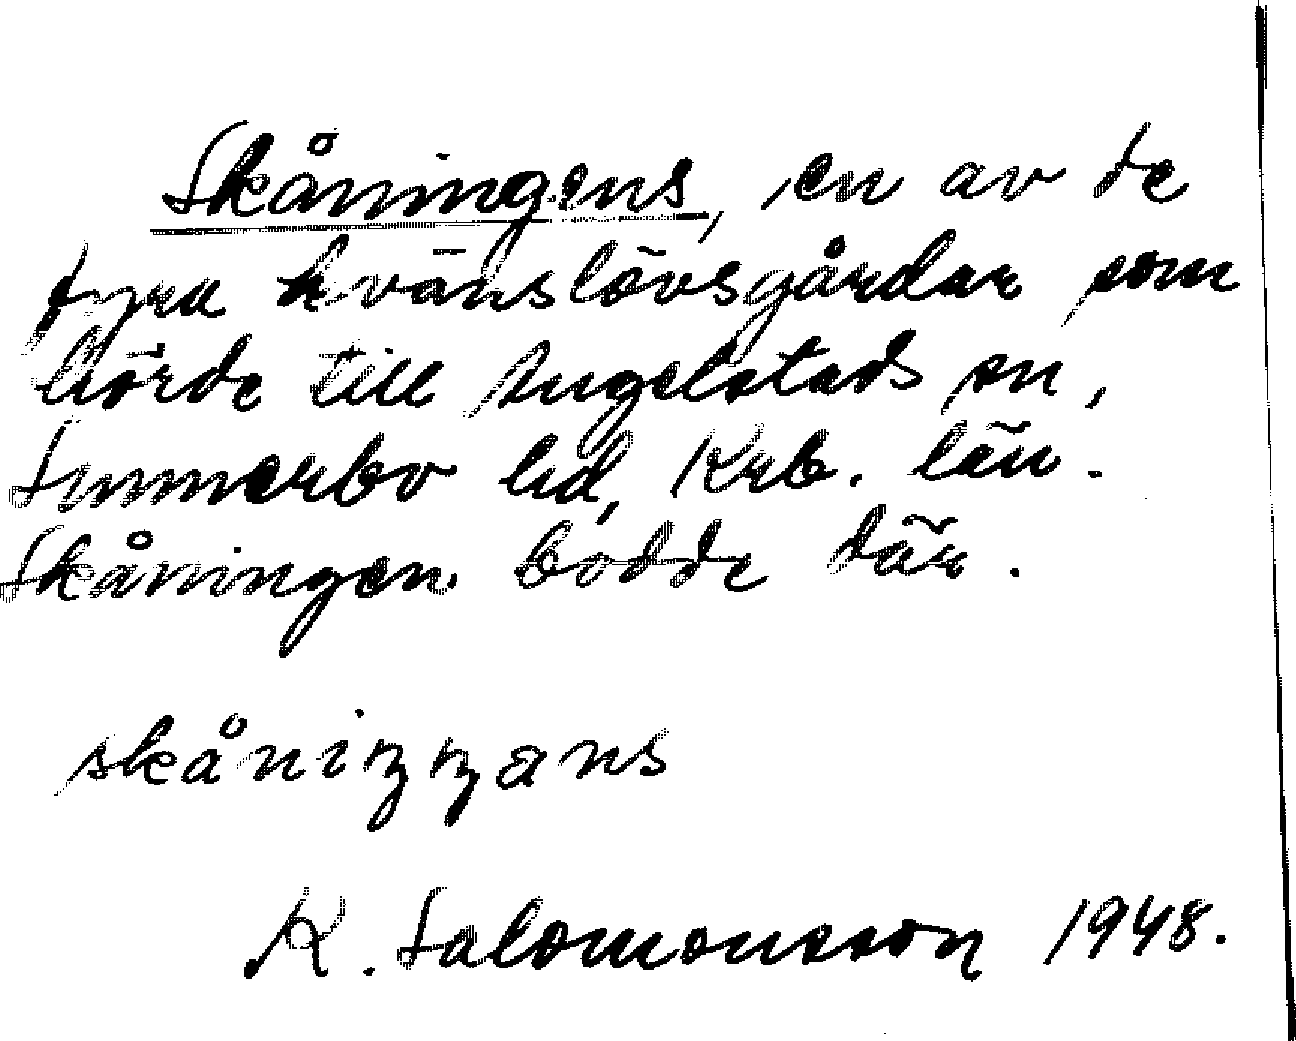 Skåningens, en av de
fyra Kvänslövsgårdar som
hörde till Angelstads sn,
Sunnerbo hd, Krb. län.
Skåningen bodde där.
skåniŋŋans
K. Salomonsson 1948.